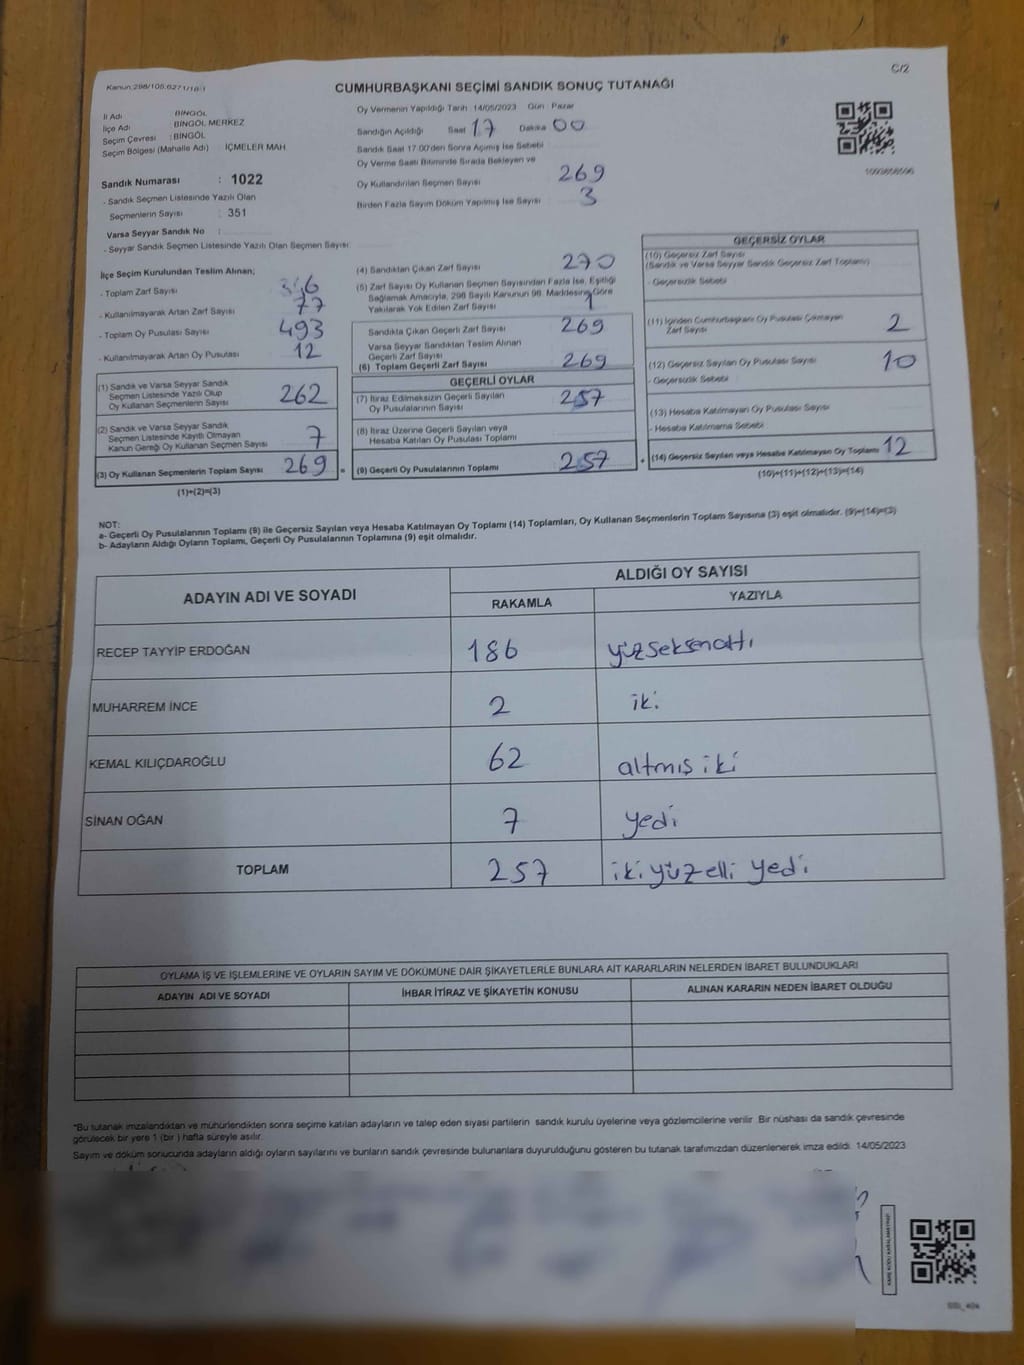 C/2
Kanun:298/105,6271/18-1
CUMHURBAŞKANI SEÇİMİ SANDIK SONUÇ TUTANAĞI
İl Adı : BİNGÖL
İlçe Adı : BİNGÖL MERKEZ
Seçim Çevresi : BİNGÖL
Seçim Bölgesi (Mahalle Adı) : İÇMELER MAH
Sandık Numarası : 1022
- Sandık Seçmen Listesinde Yazılı Olan
Seçmenlerin Sayısı : 351
Varsa Seyyar Sandık No :
- Seyyar Sandık Seçmen Listesinde Yazılı Olan Seçmen Sayısı:
Oy Vermenin Yapıldığı Tarih 14/05/2023 Gün : Pazar
Sandığın Açıldığı Saat 17 Dakika 00
Sandık Saat 17:00'den Sonra Açılmış İse Sebebi
Oy Verme Saati Bitiminde Sırada Bekleyen ve
Oy Kullandırılan Seçmen Sayısı 269
Birden Fazla Sayım Döküm Yapılmış İse Sayısı 3
İlçe Seçim Kurulundan Teslim Alınan;
- Toplam Zarf Sayısı
- Kullanılmayarak Artan Zarf Sayısı 77
- Toplam Oy Pusulası Sayısı 493
- Kullanılmayarak Artan Oy Pusulası 12
(1) Sandık ve Varsa Seyyar Sandık
Seçmen Listesinde Yazılı Olup
Oy Kullanan Seçmenlerin Sayısı 262
(2) Sandık ve Varsa Seyyar Sandık
Seçmen Listesinde Kayıtlı Olmayan
Kanun Gereği Oy Kullanan Seçmen Sayısı 7
(3) Oy Kullanan Seçmenlerin Toplam Sayısı 269 =
(1)+(2)=(3)
(4) Sandıktan Çıkan Zarf Sayısı 270
(5) Zarf Sayısı Oy Kullanan Seçmen Sayısından Fazla İse, Eşitliği
Sağlamak Amacıyla, 298 Sayılı Kanunun 98. Maddesine Göre
Yakılarak Yok Edilen Zarf Sayısı 1
Sandıkta Çıkan Geçerli Zarf Sayısı 269
Varsa Seyyar Sandıktan Teslim Alınan
Geçerli Zarf Sayısı
(6) Toplam Geçerli Zarf Sayısı 269
GEÇERLİ OYLAR
(7) İtiraz Edilmeksizin Geçerli Sayılan
Oy Pusulalarının Sayısı 257
(8) İtiraz Üzerine Geçerli Sayılan veya
Hesaba Katılan Oy Pusulası Toplamı
(9) Geçerli Oy Pusulalarının Toplamı 257 +
1093656596
GEÇERSİZ OYLAR
(10) Geçersiz Zarf Sayısı
(Sandık ve Varsa Seyyar Sandık Geçersiz Zarf Toplamı)
- Geçersizlik Sebebi
(11) İçinden Cumhurbaşkanı Oy Pusulası Çıkmayan
Zarf Sayısı 2
(12) Geçersiz Sayılan Oy Pusulası Sayısı 10
- Geçersizlik Sebebi
(13) Hesaba Katılmayan Oy Pusulası Sayısı
- Hesaba Katılmama Sebebi
(14) Geçersiz Sayılan veya Hesaba Katılmayan Oy Toplamı 12
(10)+(11)+(12)+(13)=(14)
NOT:
a- Geçerli Oy Pusulalarının Toplamı (9) ile Geçersiz Sayılan veya Hesaba Katılmayan Oy Toplamı (14) Toplamları, Oy Kullanan Seçmenlerin Toplam Sayısına (3) eşit olmalıdır. (9)+(14)=(3)
b- Adayların Aldığı Oyların Toplamı, Geçerli Oy Pusulalarının Toplamına (9) eşit olmalıdır.
ADAYIN ADI VE SOYADI ALDIĞI OY SAYISI
RAKAMLA YAZIYLA
RECEP TAYYİP ERDOĞAN 186 yüzseksenaltı
MUHARREM İNCE 2 iki
KEMAL KILIÇDAROĞLU 62 altmış iki
SİNAN OĞAN 7 yedi
TOPLAM 257 iki yüz elli yedi
OYLAMA İŞ VE İŞLEMLERİNE VE OYLARIN SAYIM VE DÖKÜMÜNE DAİR ŞİKAYETLERLE BUNLARA AİT KARARLARIN NELERDEN İBARET BULUNDUKLARI
ADAYIN ADI VE SOYADI İHBAR İTİRAZ VE ŞİKAYETİN KONUSU ALINAN KARARIN NEDEN İBARET OLDUĞU
*Bu tutanak imzalandıktan ve mühürlendikten sonra seçime katılan adayların ve talep eden siyasi partilerin sandık kurulu üyelerine veya gözlemcilerine verilir. Bir nüshası da sandık çevresinde
görülecek bir yere 1 (bir ) hafta süreyle asılır.
Sayım ve döküm sonucunda adayların aldığı oyların sayılarını ve bunların sandık çevresinde bulunanlara duyurulduğunu gösteren bu tutanak tarafımızdan düzenlenerek imza edildi. 14/05/2023